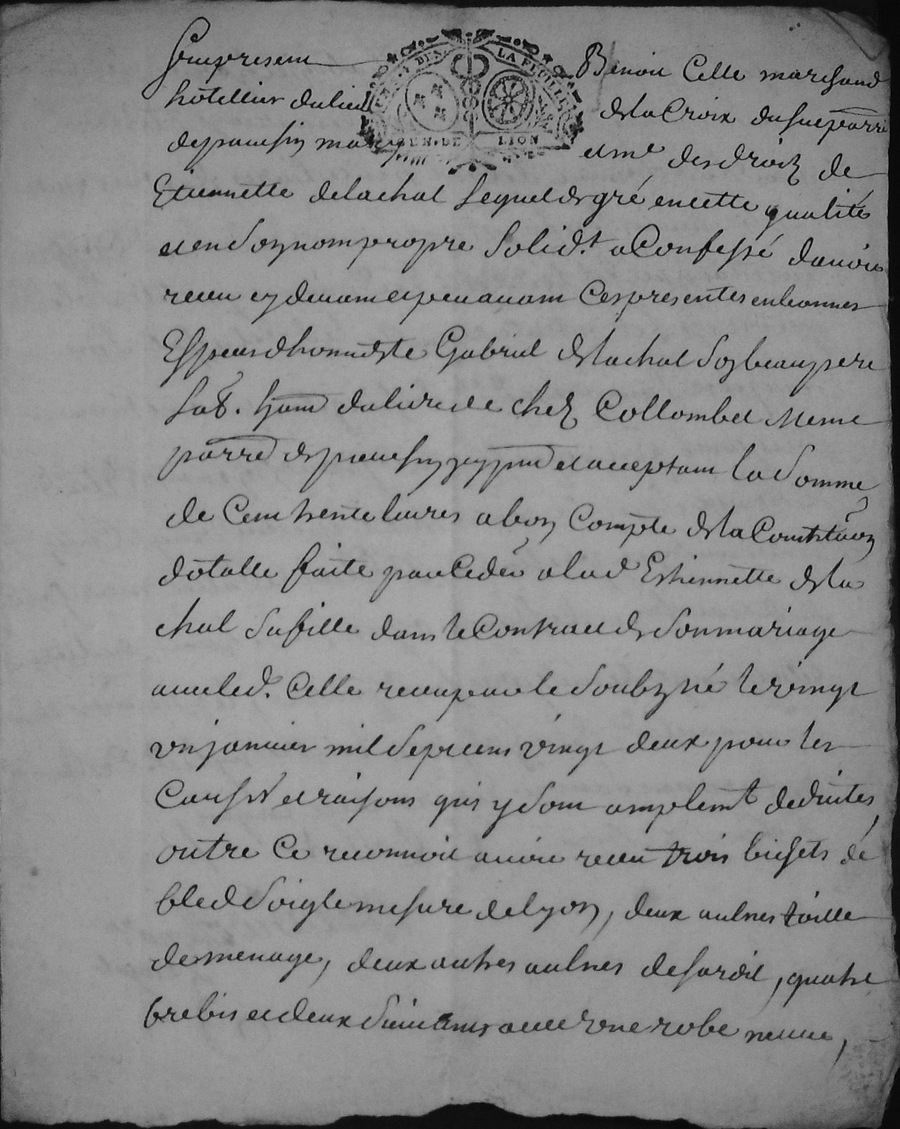 fut present Benoit Celle marchand
hotellier du lieu de la Croix du fue parr.
de panessin et me des droiz de
Etiennette delachal lequel de gré en cette qualité
et en son nom propre solid.t a Confessé d'avoir
receu cy devant et peu avant ces presentes en bonnes
Especes d'honneste Gabriel delachal son beaupere
hab. du lieu de chez Collombet meme
parr. de et acceptant la somme
de Cent trente livres a bon Compte de la Constituon
dotalle faite par a lad Etiennette dela
chal sa fille dans le Contract de son mariage
avec led. Celle receu par le soubzné le vingt
un janvier mil sept cens vingt deux pour les
Causes et raisons qui y sont amplemt deduites,
outre ce reconnoit avoir receu trois bichets de
bled soigle mesure de Lyon, deux aulnes toille
de menage, deux autres aulnes de sardit, quatre
brebis et deux avec une robe neuve,
LA
DEN. DE LION